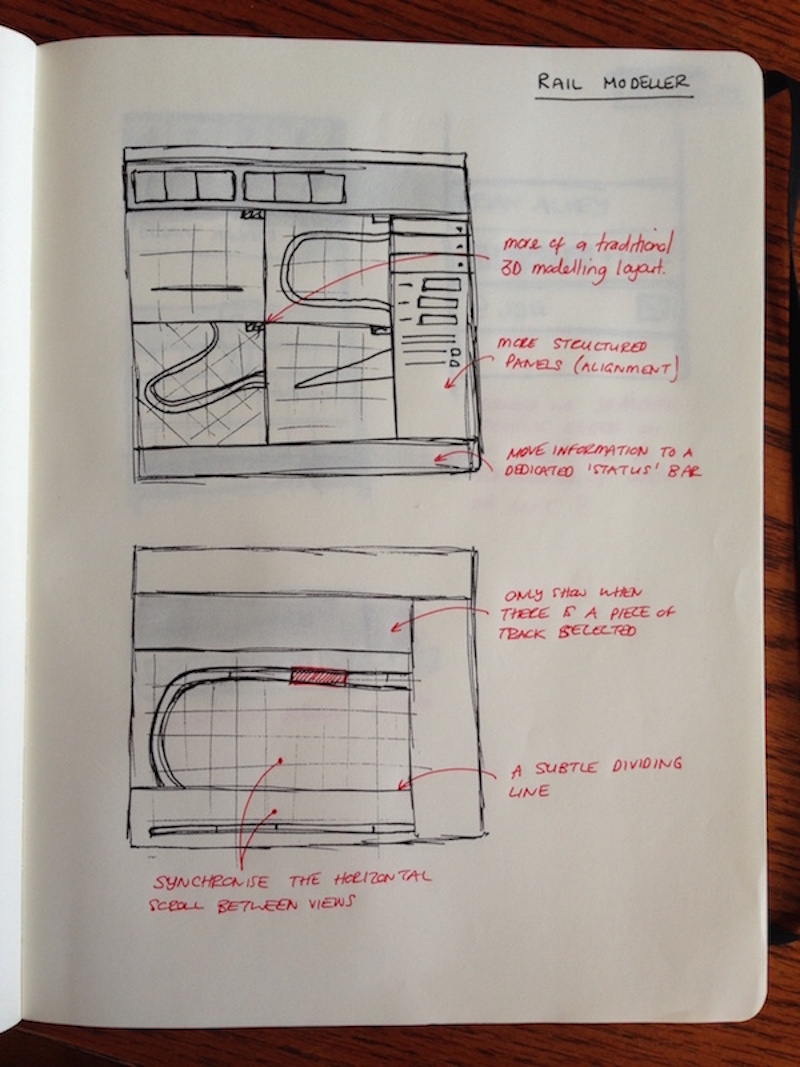 RAIL MODELLER
more of a traditional
3D modelling layout.
MORE STRUCTURED
PANELS (ALIGNMENT)
MOVE INFORMATION TO A
DEDICATED 'STATUS' BAR
ONLY SHOW WHEN
THERE IS A PIECE OF
TRACK SELECTED
A SUBTLE DIVIDING
LINE
SYNCHRONISE THE HORIZONTAL
SCROLL BETWEEN VIEWS